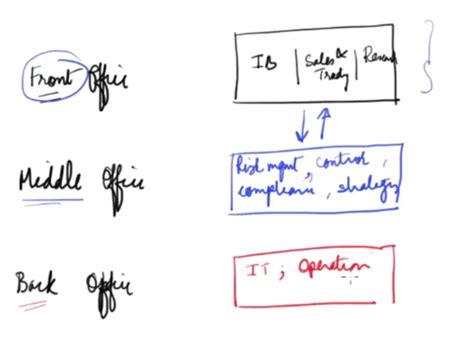 Front Office
IB | Sales & | Resear
Trady
Middle Office
Risk mgmt, control,
compliance, strategy
Back Office
IT ; Operation